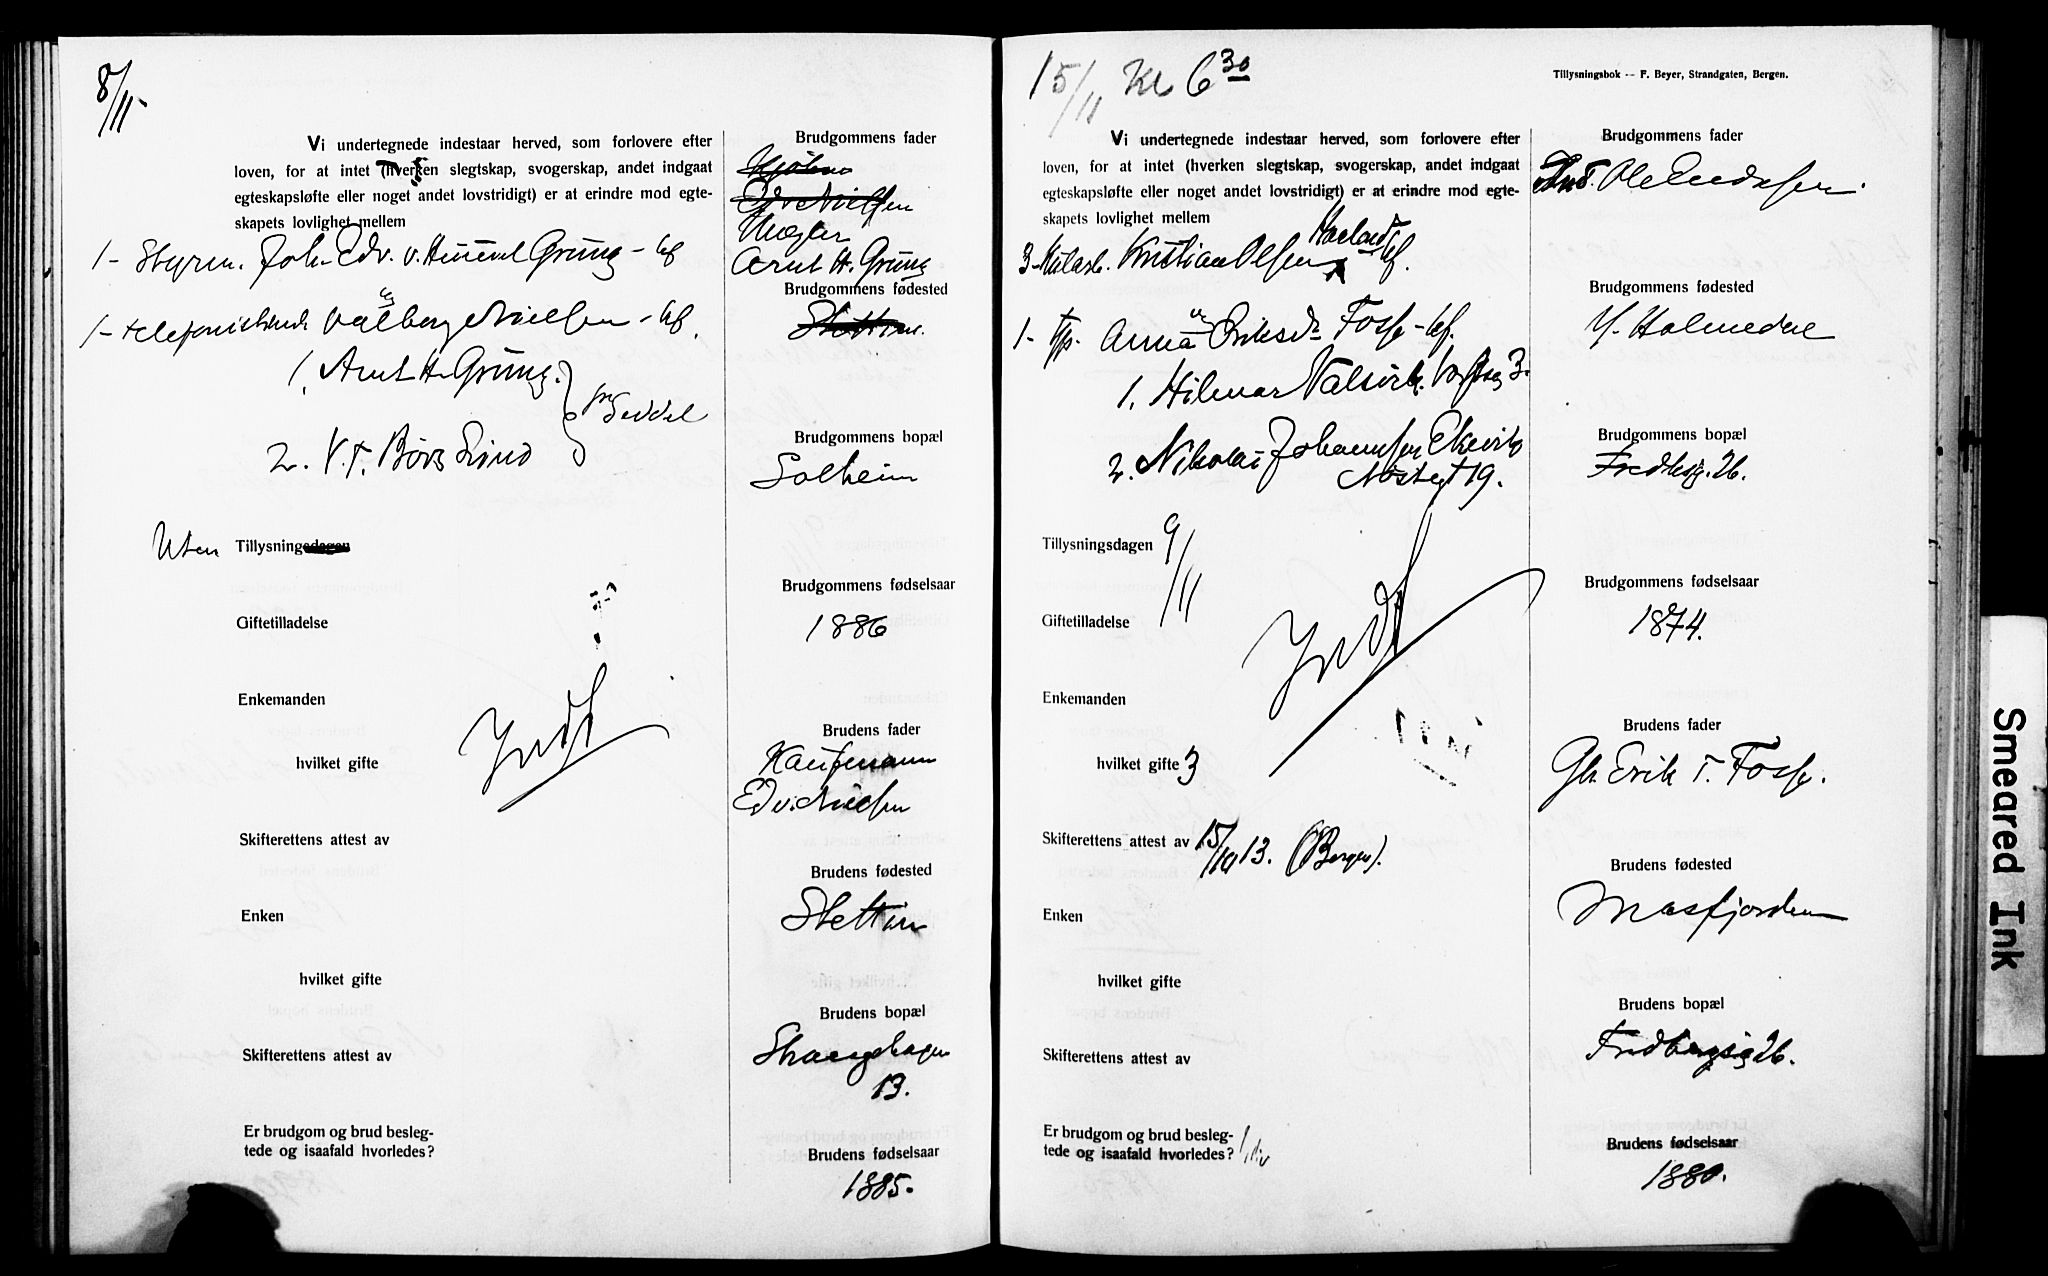 8/11
Vi undertegnede indestaar herved, som forlovere efter
loven, for at intet (hverken slegtskap, svogerskap, andet indgaat
egteskapsløfte eller noget andet lovstridigt) er at erindre mod egte-
skapets lovlighet mellem
1- Styrm. Joh. Edv. v. Grung -
1- telefonistinde Valborg Nielsen -
1. Arnt H. Grung.
Seddel
2. V. T. Børs Lind
Uten Tillysningsdagen
Giftetilladelse
Enkemanden
Indf
hvilket gifte
Skifterettens attest av
Enken
hvilket gifte
Skifterettens attest av
Er brudgom og brud besleg-
tede og isaafald hvorledes?
Brudgommens fader
Edv. Nielsen
Mægler
Arnt H. Grung
Brudgommens fødested
Stettin.
Brudgommens bopæl
Solheim
Brudgommens fødselsaar
1886
Brudens fader
Kaufmann
Edv. Nielsen
Brudens fødested
Stettin
Brudens bopæl
Strangehagen
13.
Brudens fødselsaar
1885.
15/11 Kl 6 30
Tillysningsbok -- F. Beyer, Strandgaten, Bergen.
Vi undertegnede indestaar herved, som forlovere efter
loven, for at intet (hverken slegtskap, svogerskap, andet indgaat
egteskapsløfte eller noget andet lovstridigt) er at erindre mod egte-
skapets lovlighet mellem
Haeland
3- Kristian Olsen
1- Anna Eriksdr Fosse -
1. Hilmar 3.
2. Nikolai Johannsen Ekevik
Nøstegt 19.
Tillysningsdagen 9/11
Giftetilladelse
Indf
Enkemanden
hvilket gifte 3
Skifterettens attest av 15/10 13. (Bergen).
Enken
hvilket gifte
Skifterettens attest av
Er brudgom og brud besleg-
tede og isaafald hvorledes?
Brudgommens fader
Ole
Brudgommens fødested
Y. Holmedal
Brudgommens bopæl
Fredbsg. 26.
Brudgommens fødselsaar
1874.
Brudens fader
Gbr Erik T. Fosse.
Brudens fødested
Masfjorden
Brudens bopæl
Fredbergsg 26.
Brudens fødselsaar
1880.
Smeared Ink